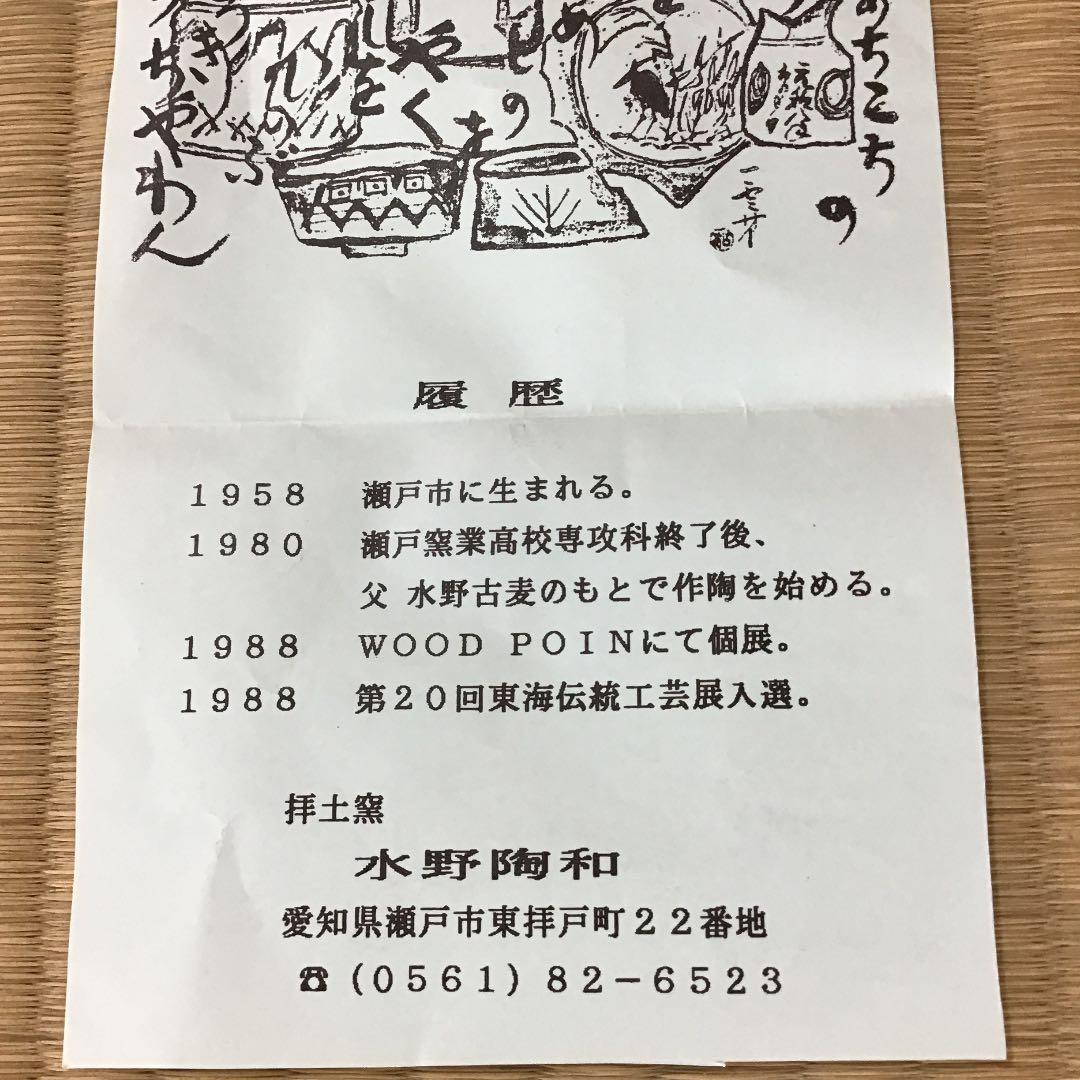 あちこちの
ちゃわん
履歴
1958 瀬戸市に生まれる。
1980 瀬戸窯業高校専攻科終了後、
父 水野古麦のもとで作陶を始める。
1988 WOOD POINにて個展。
1988 第20回東海伝統工芸展入選。
拝土窯
水野陶和
愛知県瀬戸市東拝戸町22番地
☎(0561)82-6523